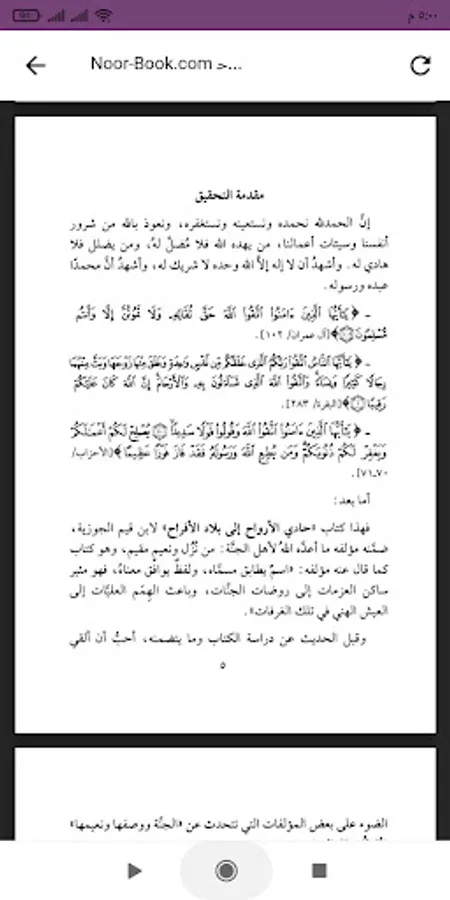 ٥:٠٠ م
Noor-Book.com حـ...
مقدمة التحقيق
إنَّ الحمدلله نحمده ونستعينه ونستغفره، ونعوذ بالله من شرور
أنفسنا وسيئات أعمالنا، من يهده الله فلا مُضلَّ لهُ، ومن يضلل فلا
هادي له. وأشهدُ أن لا إله إلاَّ الله وحده لا شريك له، وأشهدُ أنَّ محمدًا
عبده ورسوله.
ـ ﴿ يَٰٓأَيُّهَا ٱلَّذِينَ ءَامَنُوا۟ ٱتَّقُوا۟ ٱللَّهَ حَقَّ تُقَاتِهِۦ وَلَا تَمُوتُنَّ إِلَّا وَأَنتُم
مُّسْلِمُونَ ﴾ [آل عمران/ ١٠٢].
ـ ﴿ يَٰٓأَيُّهَا ٱلنَّاسُ ٱتَّقُوا۟ رَبَّكُمُ ٱلَّذِى خَلَقَكُم مِّن نَّفْسٍ وَٰحِدَةٍ وَخَلَقَ مِنْهَا زَوْجَهَا وَبَثَّ مِنْهُمَا
رِجَالًا كَثِيرًا وَنِسَآءً وَٱتَّقُوا۟ ٱللَّهَ ٱلَّذِى تَسَآءَلُونَ بِهِۦ وَٱلْأَرْحَامَ إِنَّ ٱللَّهَ كَانَ عَلَيْكُمْ
رَقِيبًا ﴾ [البقرة/ ٢٨٣].
ـ ﴿ يَٰٓأَيُّهَا ٱلَّذِينَ ءَامَنُوا۟ ٱتَّقُوا۟ ٱللَّهَ وَقُولُوا۟ قَوْلًا سَدِيدًا يُصْلِحْ لَكُمْ أَعْمَٰلَكُمْ
وَيَغْفِرْ لَكُمْ ذُنُوبَكُمْ وَمَن يُطِعِ ٱللَّهَ وَرَسُولَهُۥ فَقَدْ فَازَ فَوْزًا عَظِيمًا ﴾ [الأحزاب/
٧٠ـ٧١].
أما بعد:
فهذا كتاب «حادي الأرواح إلى بلاد الأفراح» لابن قيم الجوزية،
ضمَّنه مؤلفه ما أعدَّه اللهُ لأهل الجنَّة: من نُزُلٍ ونعيم مقيم، وهو كتاب
كما قال عنه مؤلفه: «اسمٌ يطابق مسمَّاه، ولفظٌ يوافق معناهُ، فهو مثير
ساكن العزمات إلى روضات الجنَّات، وباعث الهِمَم العليَّات إلى
العيش الهني في تلك الغرفات».
وقبل الحديث عن دراسة الكتاب وما يتضمنه، أحبُّ أن ألقي
٥
الضوء على بعض المؤلفات التي تتحدث عن «الجنَّة ووصفها ونعيمها»